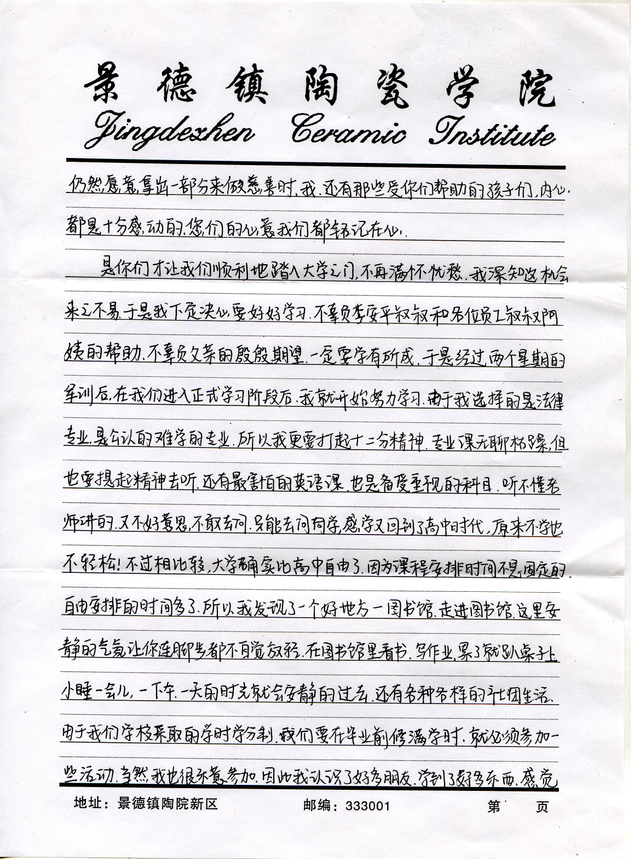 景德镇陶瓷学院
Jingdezhen Ceramic Institute
仍然愿意拿出一部分来做慈善时,我,还有那些受你们帮助的孩子们,内心
都是十分感动的,您们的心意我们都牢记在心.
是你们才让我们顺利地踏入大学之门,不再满怀忧愁.我深知这机会
来之不易于是我下定决心要好好学习.不辜负李安平叔叔和各位员工叔叔阿
姨的帮助.不辜负父亲的殷殷期望.一定要学有所成.于是经过两个星期的
军训后,在我们进入正式学习阶段后,我就开始努力学习.由于我选择的是法律
专业,是公认的难学的专业.所以我更要打起十二分精神.专业课无聊枯燥,但
也要提起精神去听.还有最害怕的英语课,也是备受重视的科目.听不懂老
师讲的,又不好意思,不敢去问.只能去问同学,感觉又回到了高中时代,原来大学也
不轻松!不过相比较,大学确实比高中自由了.因为课程安排时间不是固定的.
自由安排的时间多了.所以我发现了一个好地方—图书馆.走进图书馆,这里安
静的气氛让你连脚步都不自觉放轻.在图书馆里看书、写作业,累了就趴桌子上
小睡一会儿,一下午、一天的时光就会安静的过去.还有各种各样的社团生活.
由于我们学校采取的学时学分制.我们要在毕业前修满学时.就必须参加一
些活动.当然,我也很乐意参加.因此我认识了好多朋友.学到了好多东西.感觉
地址:景德镇陶院新区 邮编:333001 第 页